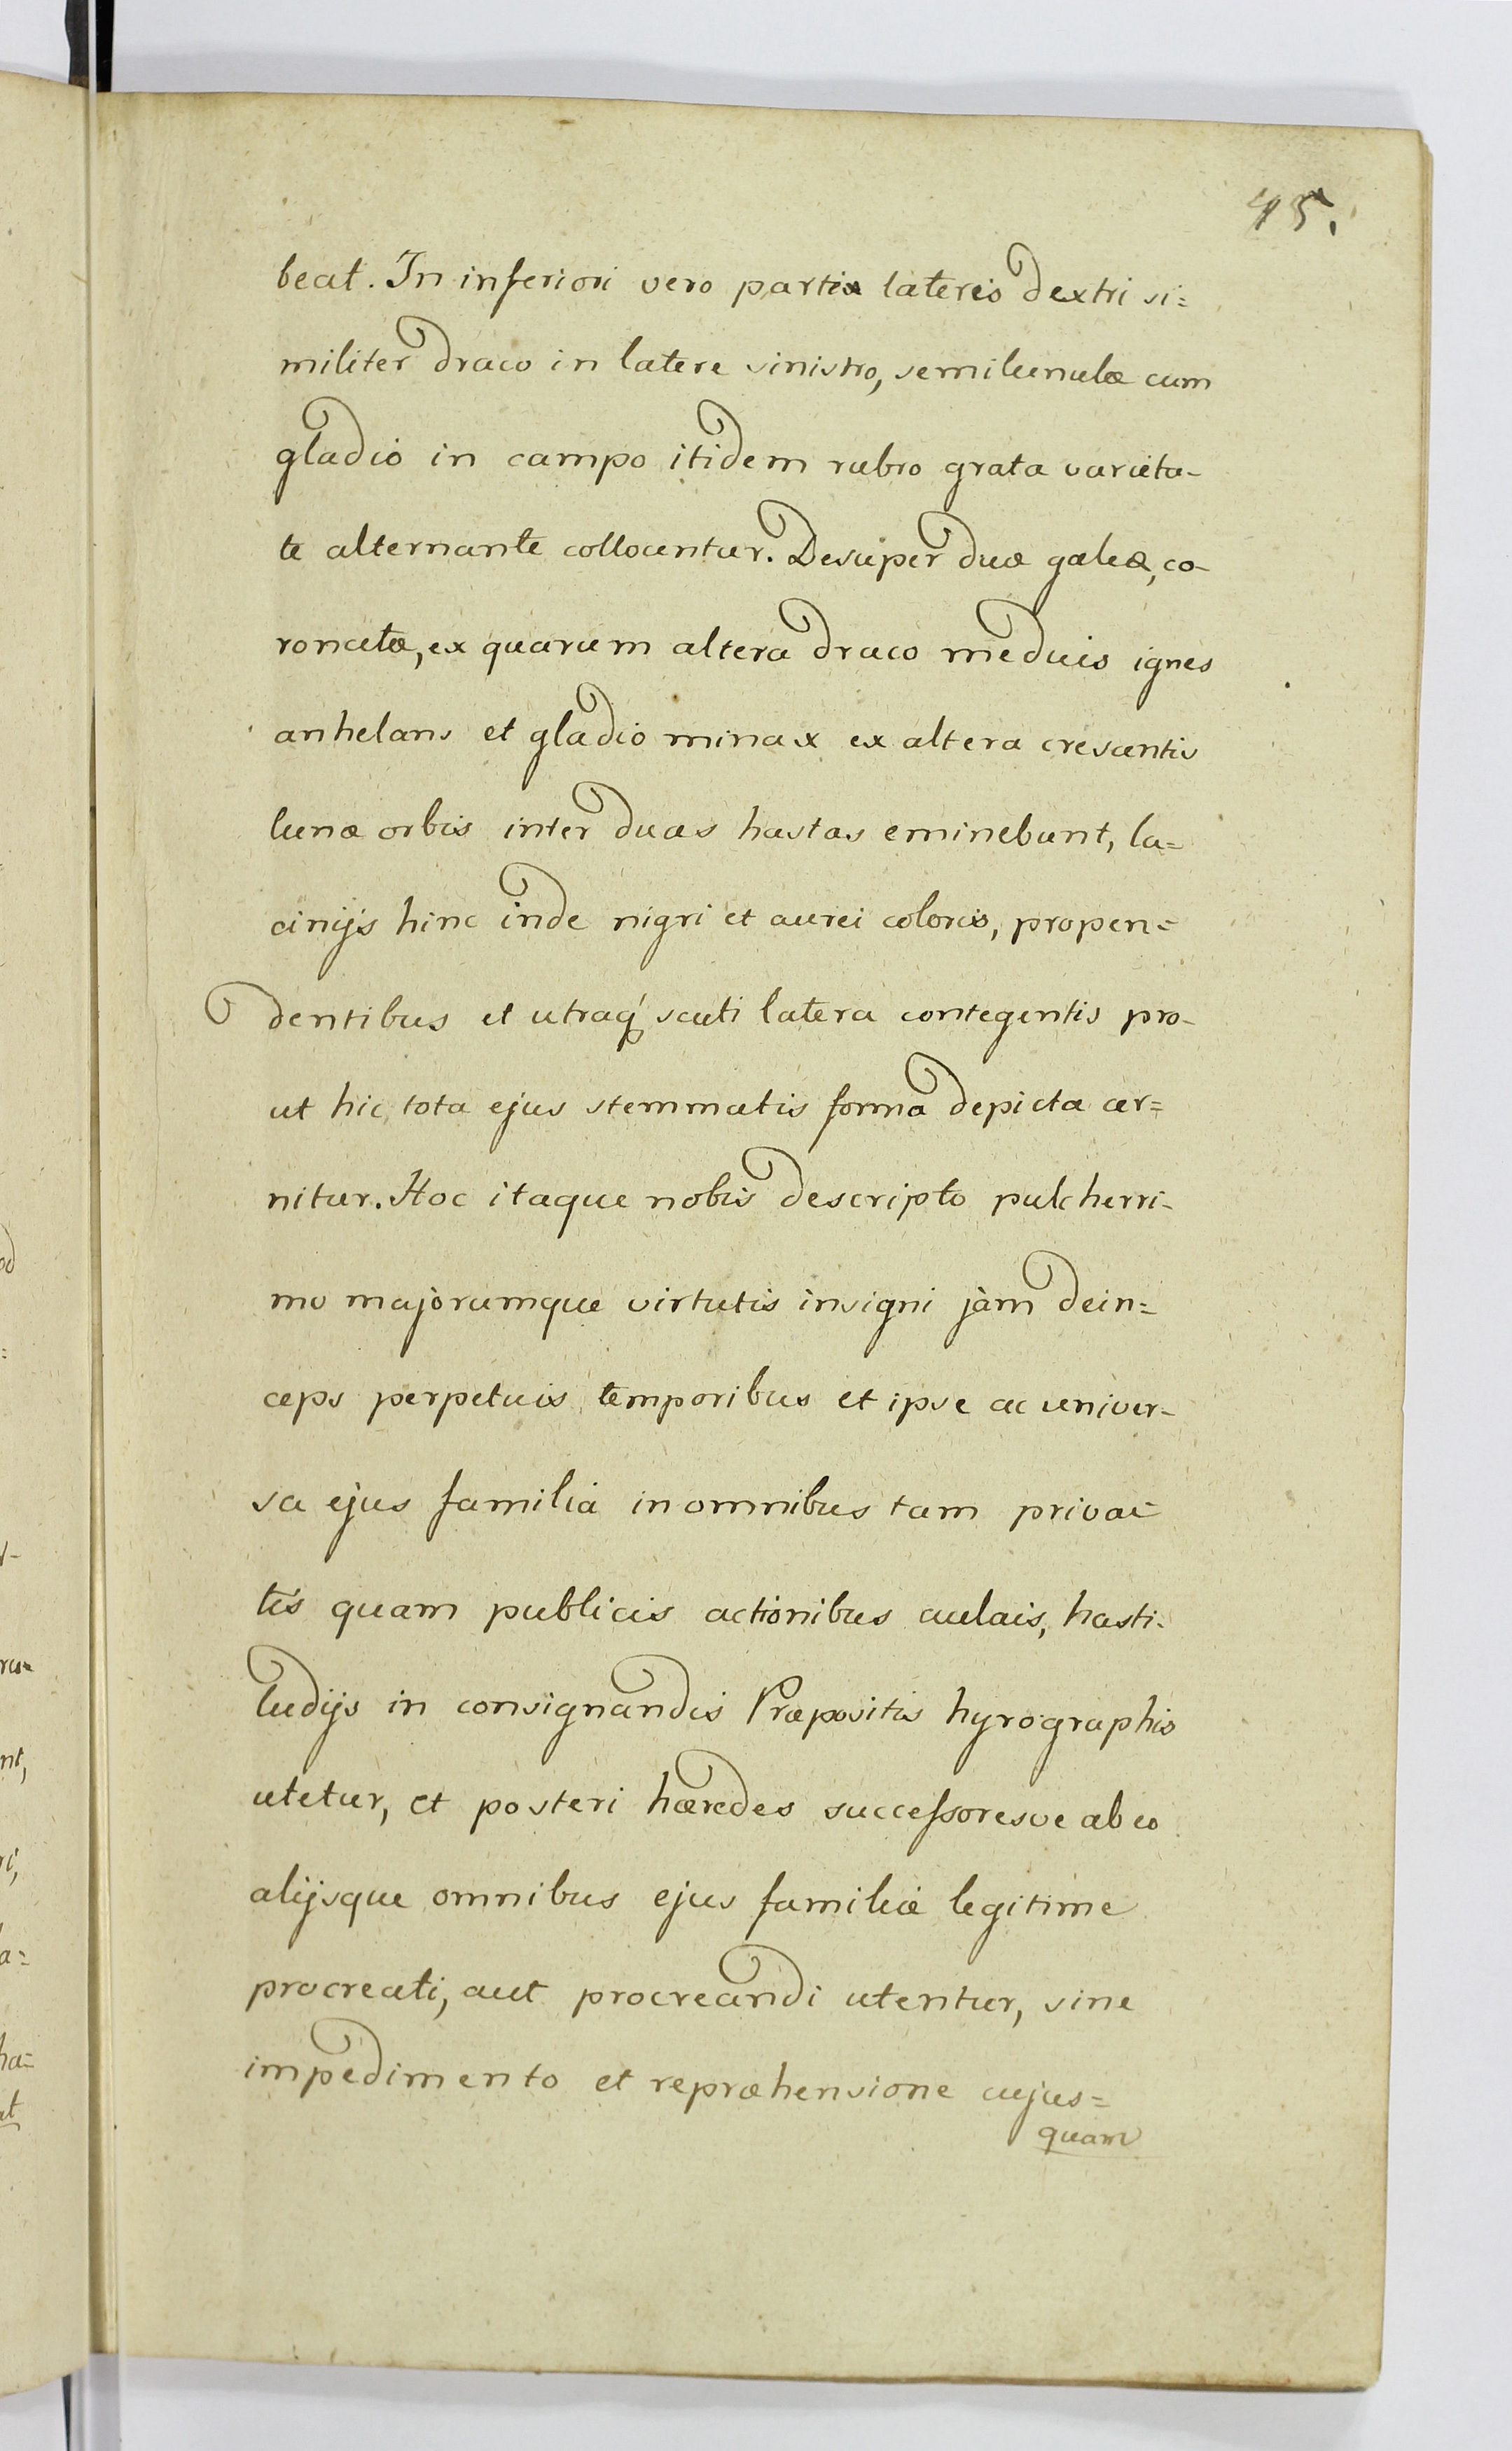 45.
beat. In inferiori vero partis lateris dextri si=
militer draco in latere sinistro, semilunulæ cum
gladio in campo itidem rubro grata varieta-
te alternante collocantur. Desuper duæ galeæ, co-
ronatæ, ex quarum altera draco meduis ignes
anhelans et gladio minax ex altera crescentis
lunæ orbis inter duas hastas eminebunt, la=
cinijs hinc inde nigri et aurei coloris, propen=
dentibus et utraq́ scuti latera contegentis pro-
ut hic tota ejus stemmatis forma depicta cer=
nitur. Hoc itaque nobis descripto pulcherri-
mo majorumque virtutis insigni jàm dein=
ceps perpetuis temporibus et ipse ac univer-
sa ejus familia in omnibus tam priva-
tis quam publicis actionibus aulais, hasti-
ludijs in consignandis Præpositis hyrographis
utetur, et posteri hæredes successoresve ab eo
alijsque omnibus ejus familiæ legitime
procreati, aut procreandi utentur, sine
impedimento et repræhensione cujus=
quam